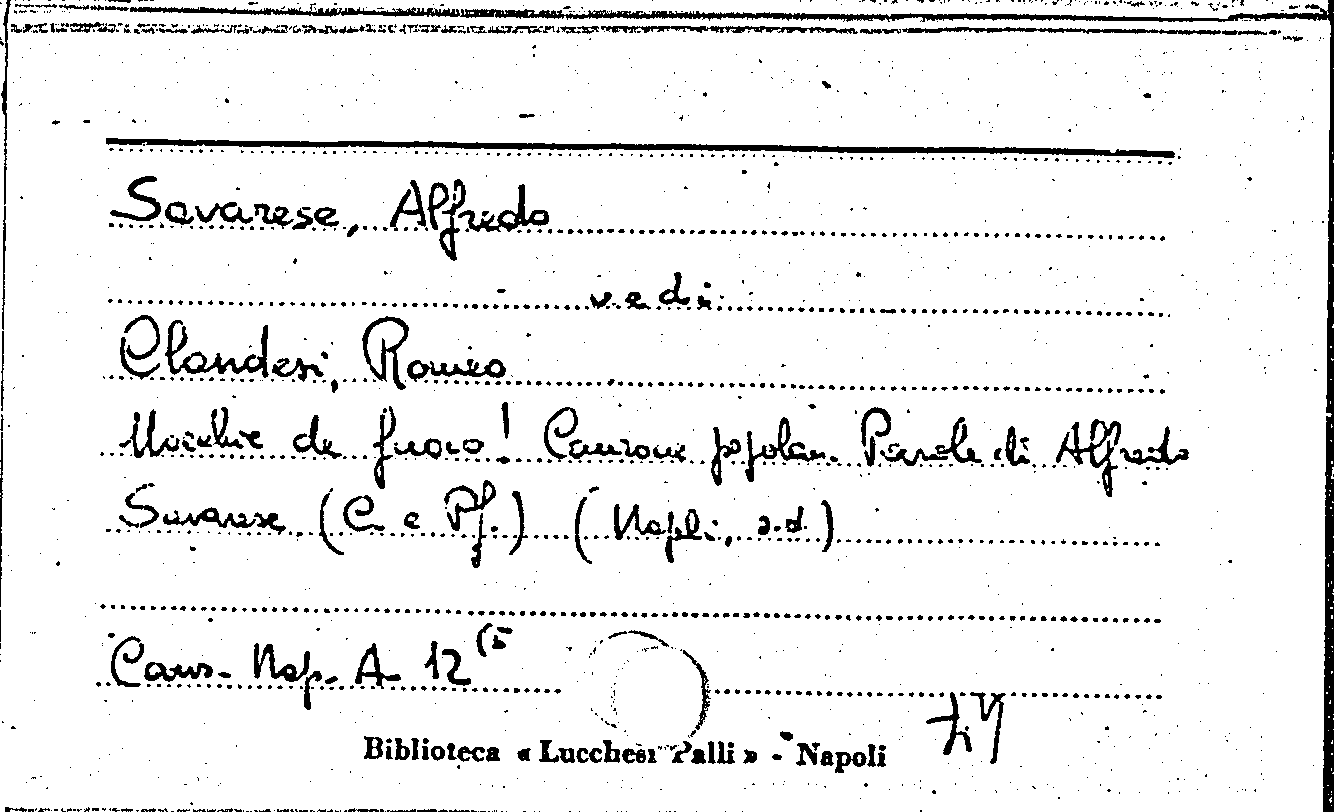 Savarese, Alfredo
vedi
Clandesi, Romeo
Uocchie de fuoco! Canzone popolare. Parole di Alfredo
Savarese (C. e Pf.) (Napoli, s.d.)
Canz. Nap. A. 12 (5
Biblioteca « Lucchesi Palli » - Napoli